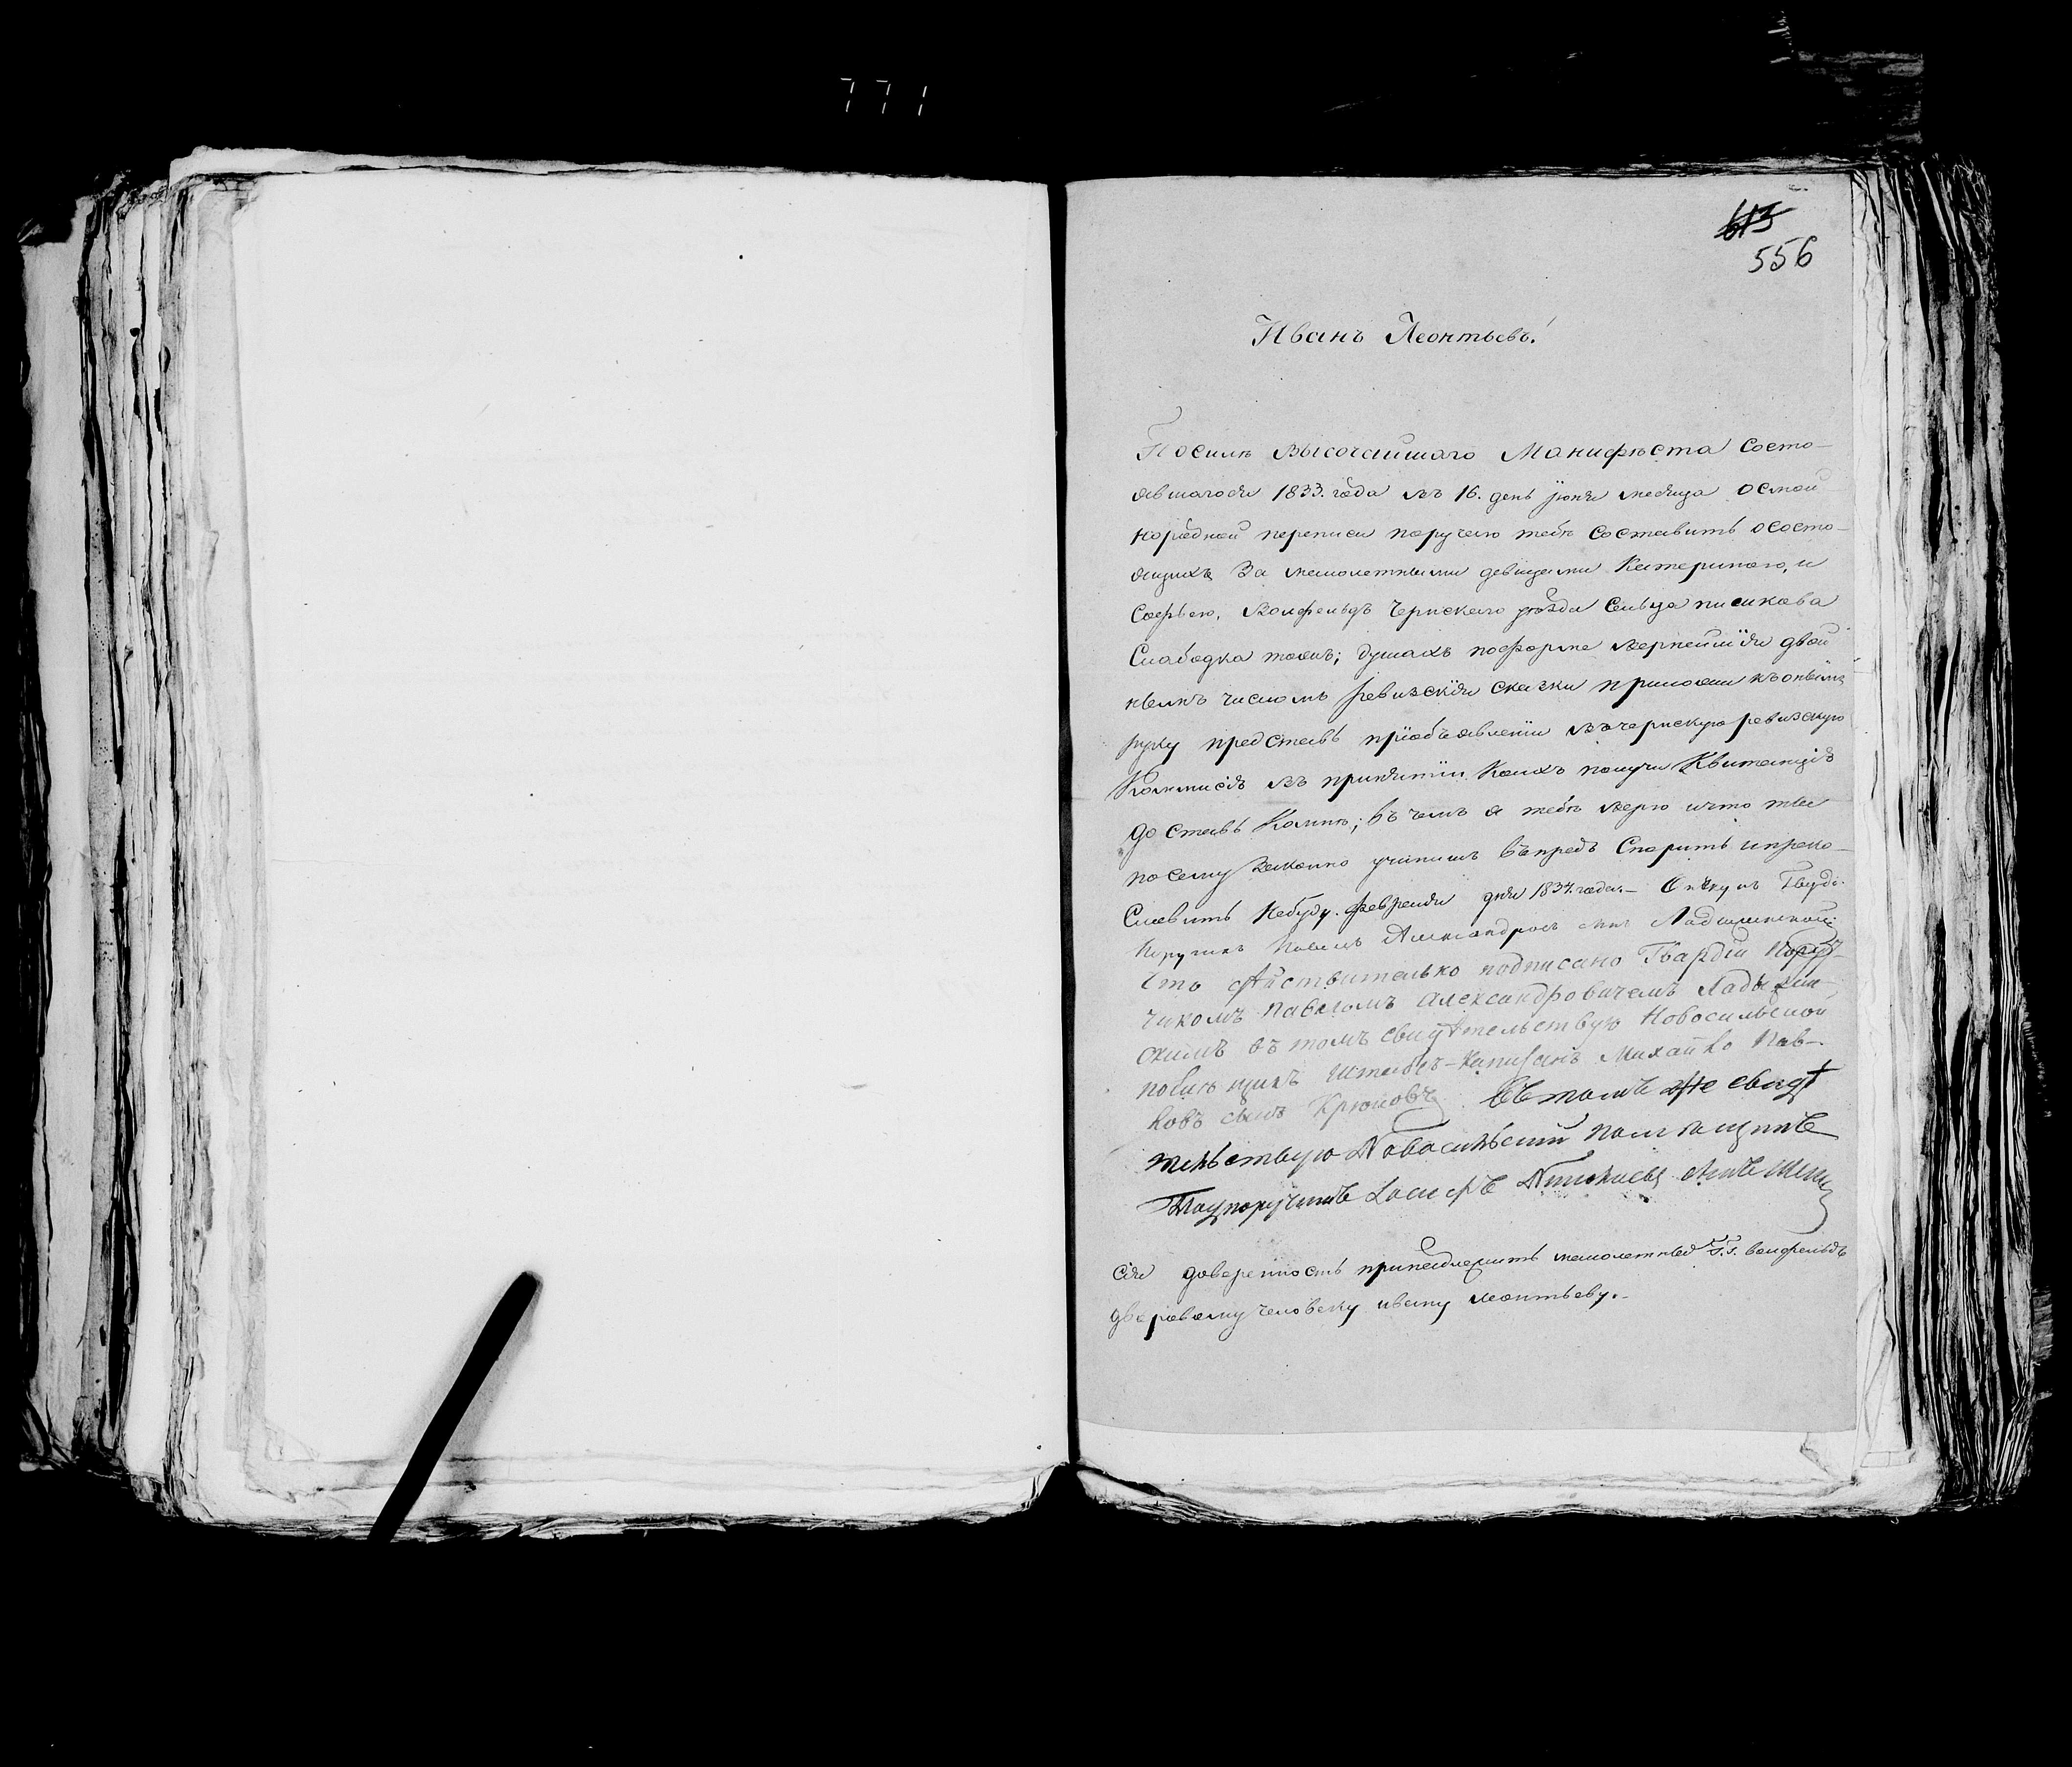 771
613
556
Иванъ Леонтьевъ!
По силѣ Высочайшаго Манифѣста Состо-
явшагося 1833. года въ 16. день Іюня месяца осмой
народной переписи поручаю тебѣ Составить ососто-
ящихъ За малолетными девицами Катериною, и
Софьею, Вольфельдъ Чернскаго уѣзда Сельца
Слабодка тожъ; душахъ поформе вернейшїя двой
нымъ числомъ ревизскїя сказки приложи къ онымъ
руку представь приобъявленїи въчернскую ревизскую
Коммисїю въ принятїи Коихъ получи Квитанцїю
доставь Комнѣ; въ чемъ я тебѣ верю ичто ты
посему Законно учинишъ впредъ Спорить ипреко-
Словить Небуду. февраля дня 1834. года.— Опѣкунъ Гвардї
Поручикъ Павелъ Александровъ сынъ Ладыженской
Что дѣйствительно подписано Гвардїи Пору-
чикомъ Павломъ Александровичемъ Ладыжин-
скимъ въ томъ свидѣтельствую Новосильской
помѣщикъ Штабсъ-Капитанъ Михайло Пав-
ловъ сынъ Крюковъ Въ томъ же свидѣ
тельствую Новосильский помѣщикъ
Подпоручикъ
сїя доверенность принадлежитъ малолетныхъ Г.Г. вольфельдъ
дворовому человеку ивану леонтьеву.—